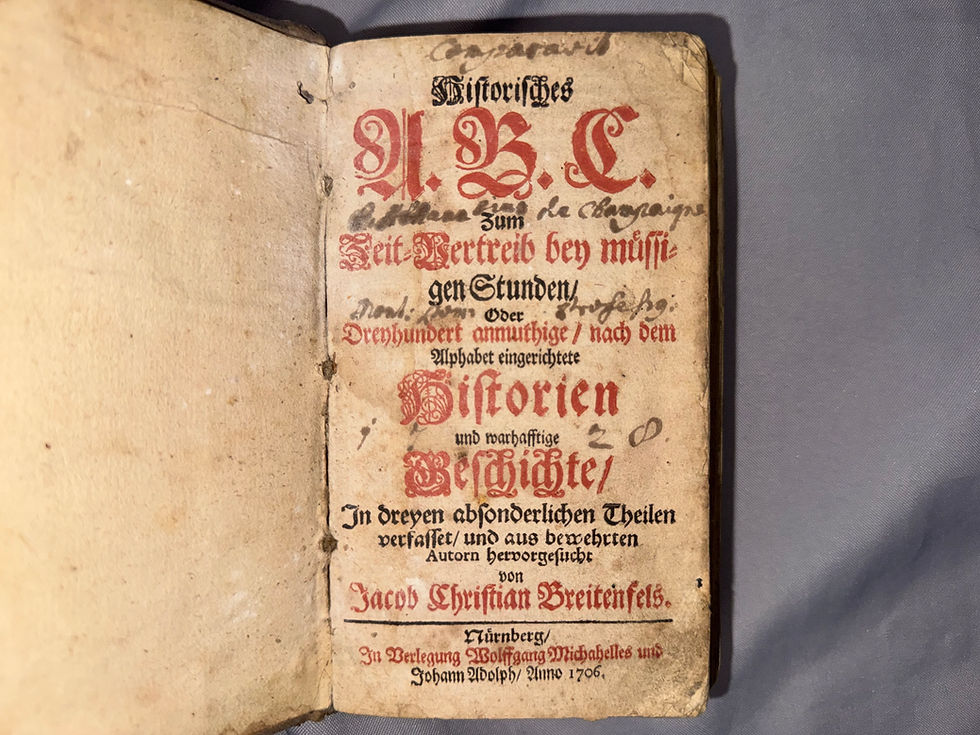 Comparavit
Historisches
A. B. C.
de Champaigne
Zum
Zeit-Vertreib bey müssi-
gen Stunden/
Oder
Dreyhundert anmuthige / nach dem
Alphabet eingerichtete
Historien
und warhafftige
28
Geschichte/
In dreyen absonderlichen Theilen
verfasset/ und aus bewehrten
Autorn hervorgesucht
von
Jacob Christian Breitenfels.
Nürnberg/
In Verlegung Wolffgang Michahelles und
Johann Adolph/ Anno 1706.